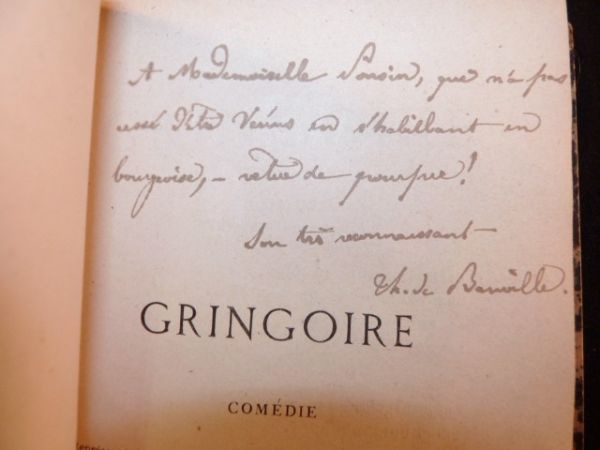 A Mademoiselle Ponsin, qui n'a pas
cessé d'être Vénus en s'habillant en
bourgeoise, — vêtue de pourpre!
Son très reconnaissant
Th. de Banville.
GRINGOIRE
COMÉDIE